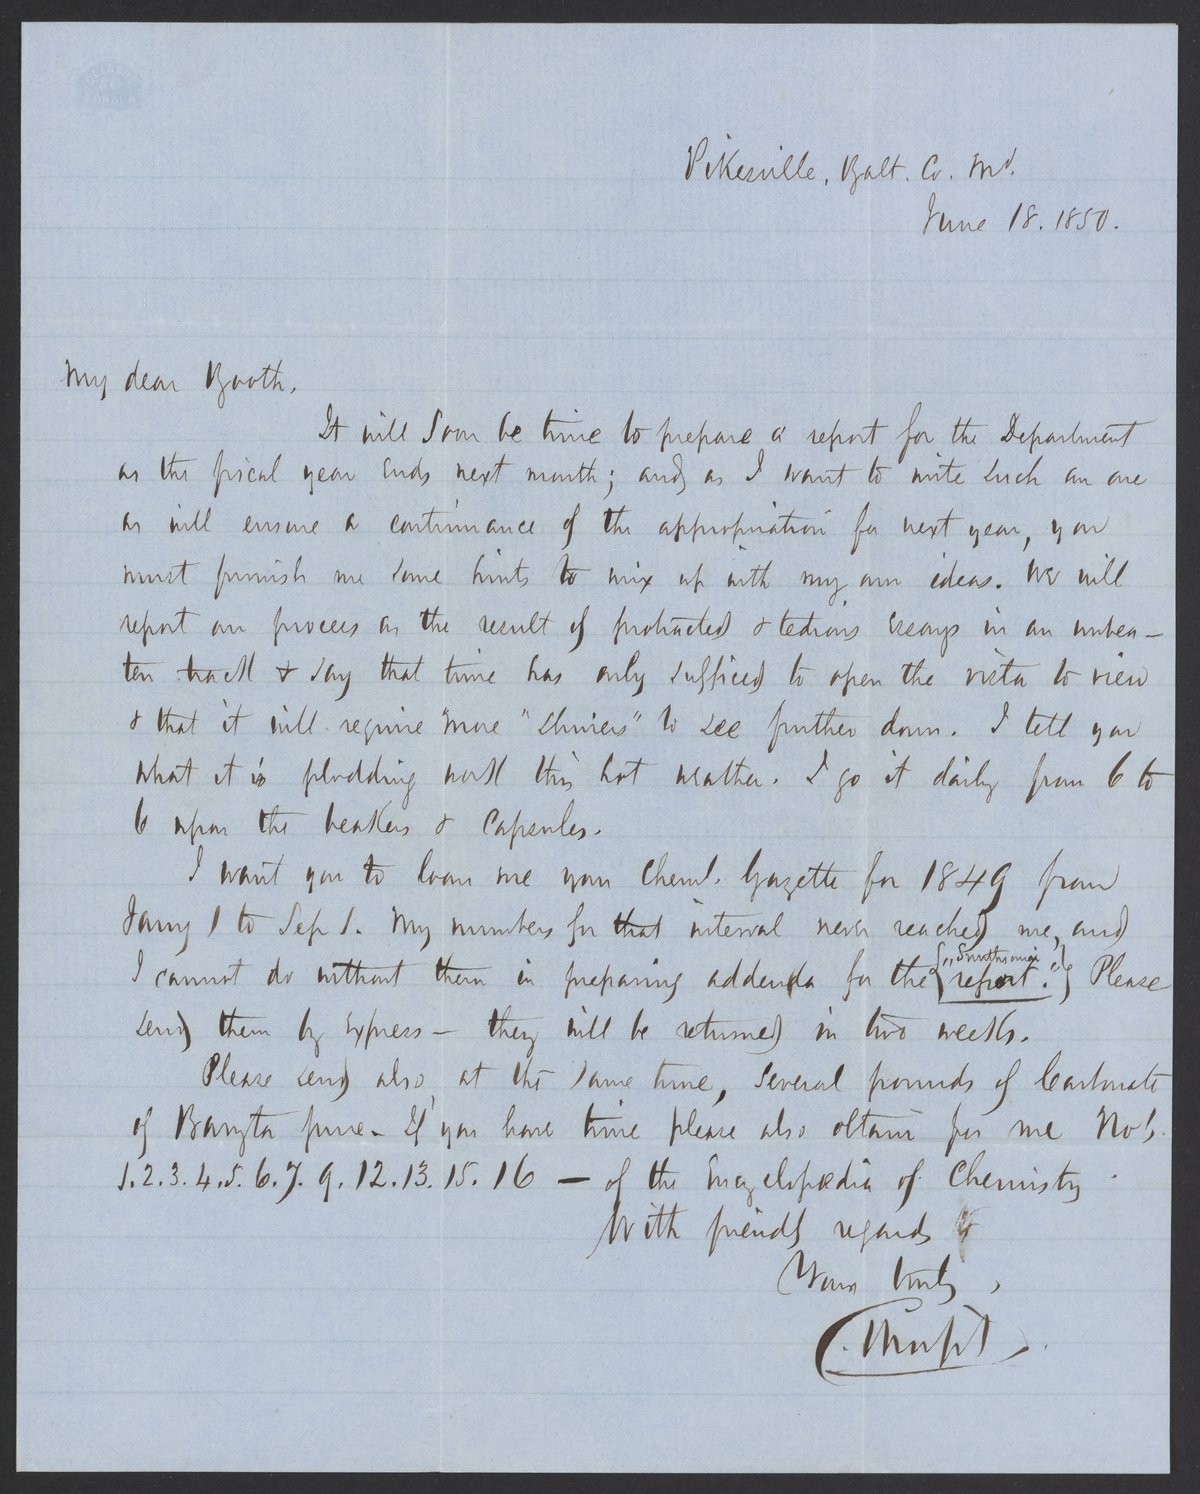 Pikesville, Balt. Co. Md.
June 18. 1850.
My dear Booth,
It will soon be time to prepare a report for the Department
as the fiscal year ends next month; and as I want to write such an one
as will ensure a continuance of the appropriation for next year, you
must furnish me some hints to mix up with my own ideas. We will
report our process as the result of protracted & tedious essays in an unbea–
ten track & say that time has only sufficed to open the vista to view
& that it will require "more "shiners" to see further down. I tell you
what it is plodding work this hot weather. I go it daily from 6 to
6 upon the beakers & capsules.
I want you to loan me your Cheml. Gazette for 1849 from
Jany 1 to Sep 1. My numbers for that interval never reached me, and
I cannot do without them in preparing addenda for the {"Smithsonian report."} Please
send them by Express – they will be returned in two weeks.
Please send also, at the same time, several pounds of Carbonate
of Baryta pure – If you have time please also obtain for me No's.
1. 2. 3. 4. 5. 6. 7. 9. 12. 13. 15. 16 — of the Encyclopædia of Chemistry.
With friendly regards
Yours truly,
C. Morfit